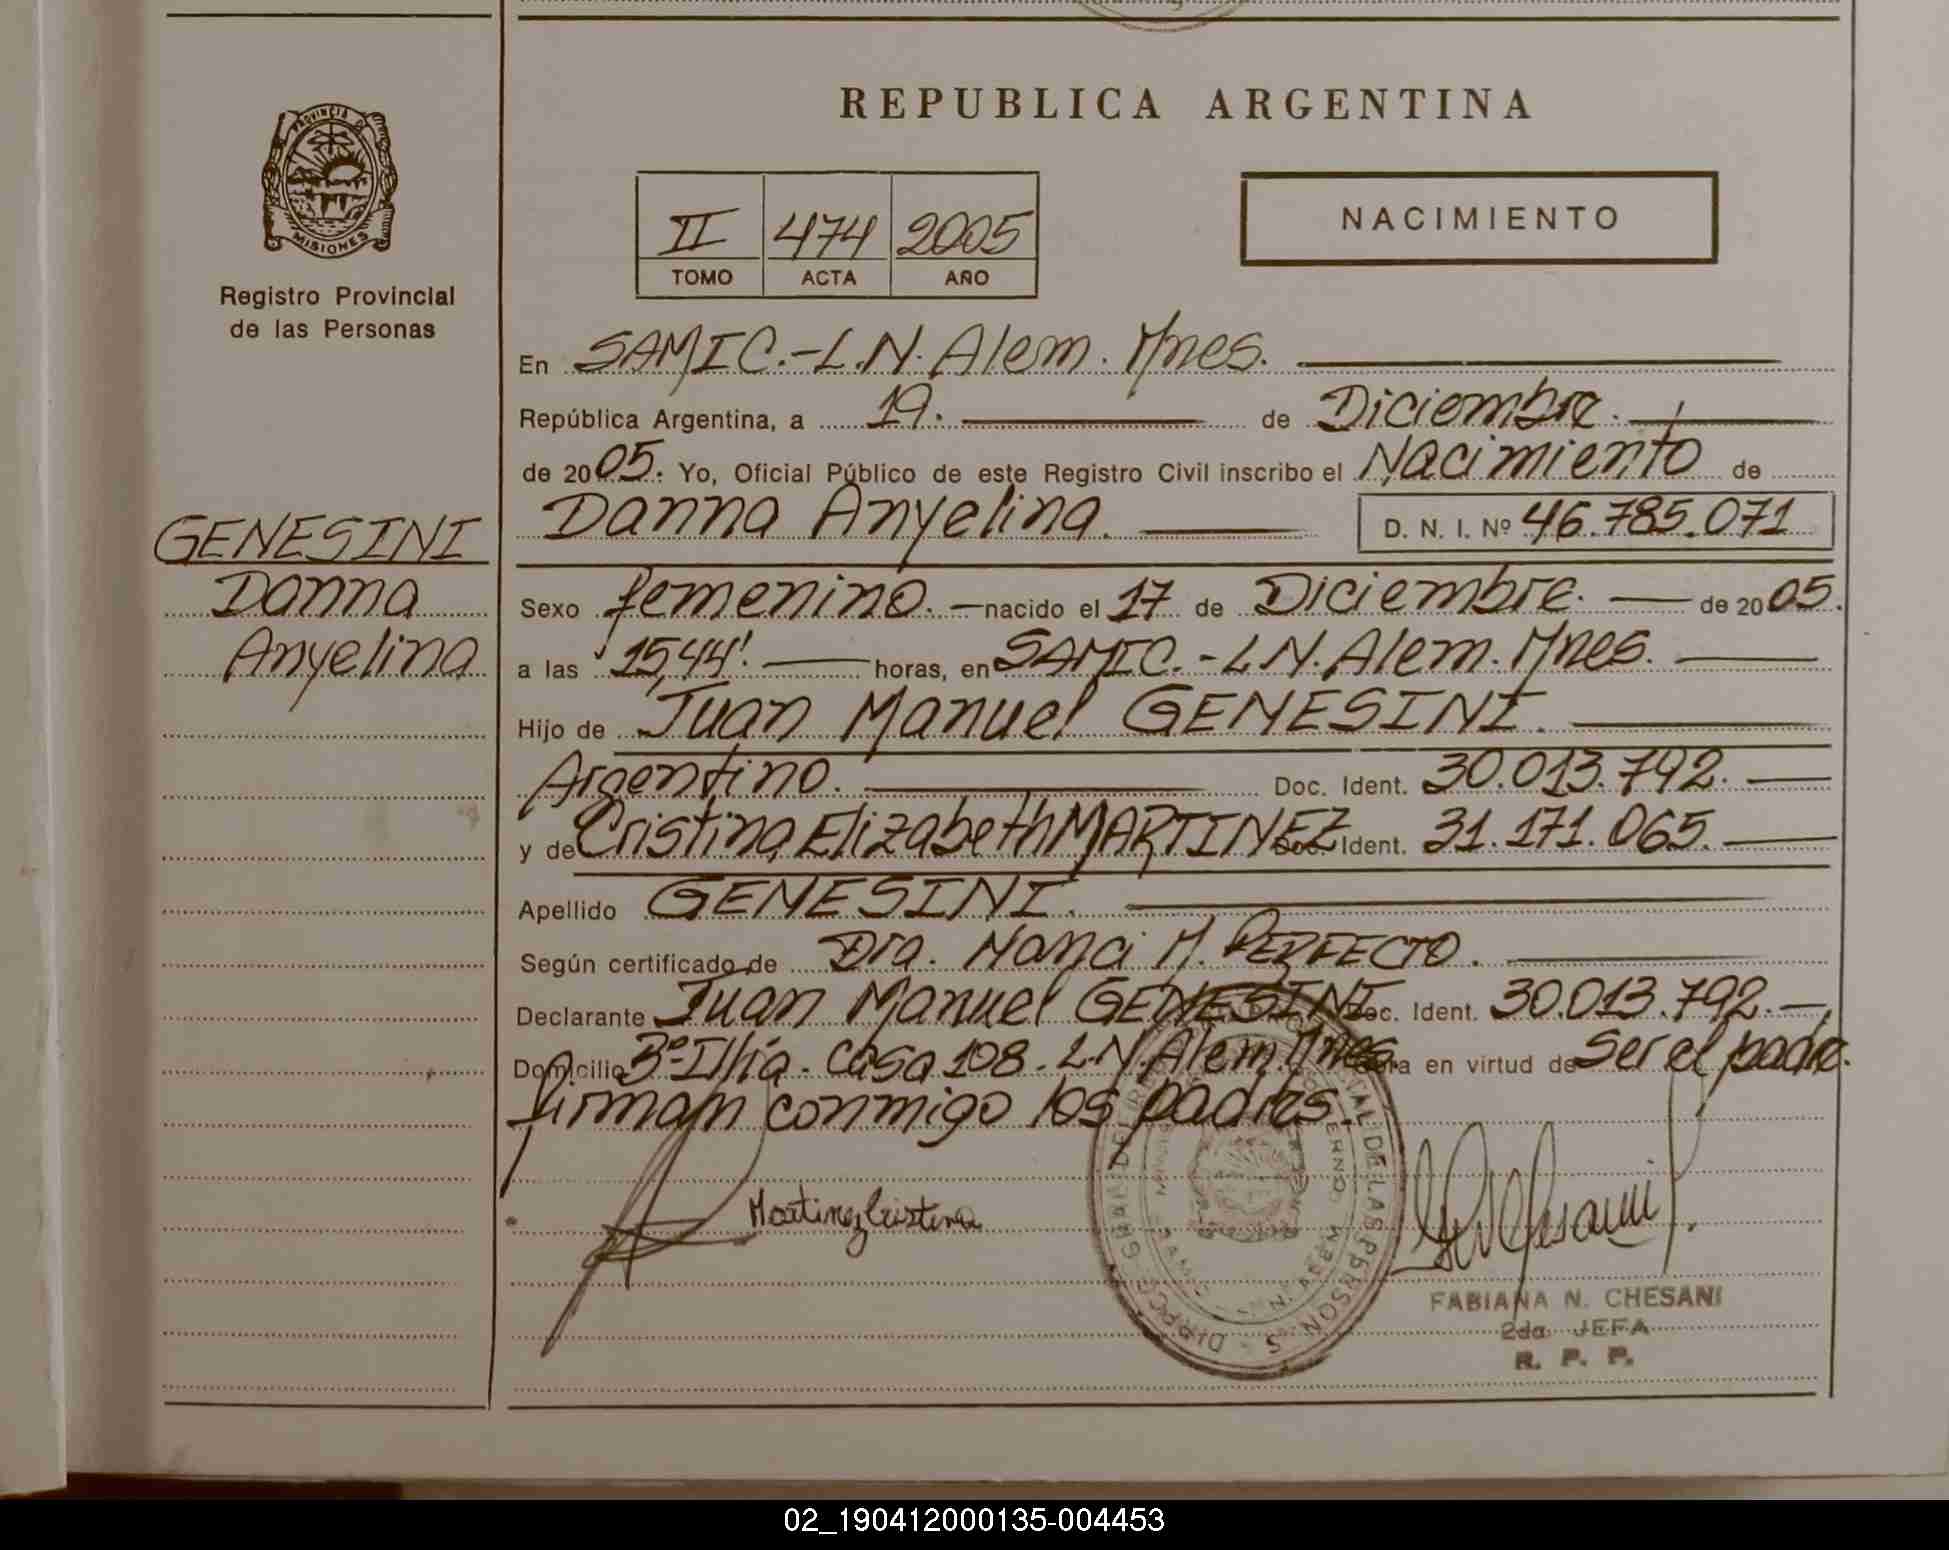 REPUBLICA ARGENTINA
PROVINCIA DE MISIONES
Registro Provincial
de las Personas
II 474 2005
TOMO ACTA AÑO
NACIMIENTO
En SAMIC.-L.N. Alem. Mnes.
República Argentina, a 19. de Diciembre.
de 2005. Yo, Oficial Público de este Registro Civil inscribo el Nacimiento de
Danna Anyelina. D. N. I. Nº 46.785.071
GENESINI
Danna
Anyelina
Sexo femenino. nacido el 17 de Diciembre. de 2005.
a las 15,44'. horas, en SAMIC.-L.N. Alem. Mnes.
Hijo de Juan Manuel GENESINI.
Argentino. Doc. Ident. 30.013.792.
y de Cristina Elizabeth MARTINEZ Doc. Ident. 31.171.065.
Apellido GENESINI.
Según certificado de Dra. Nanci M. PERFECTO.
Declarante Juan Manuel GENESINI Doc. Ident. 30.013.792.
Domicilio Bº Illia. Casa 108. L.N. Alem. Mnes. en virtud de Ser el padre.
firman conmigo los padres.
Martinez Cristina
FABIANA N. CHESANI
2da. JEFA
R. P. P.
02_190412000135-004453